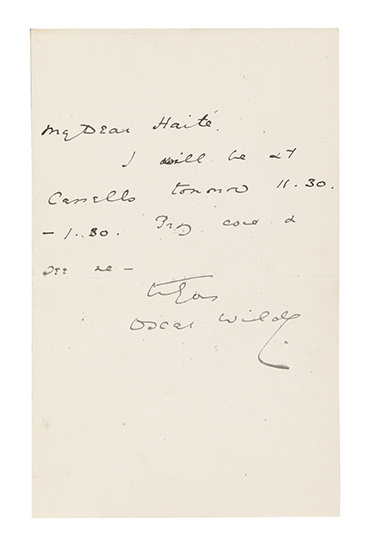 My Dear Haité.
I will be at
Cassells tomorrow 11.30.
- 1.30. Pray come &
see me -
Oscar Wilde